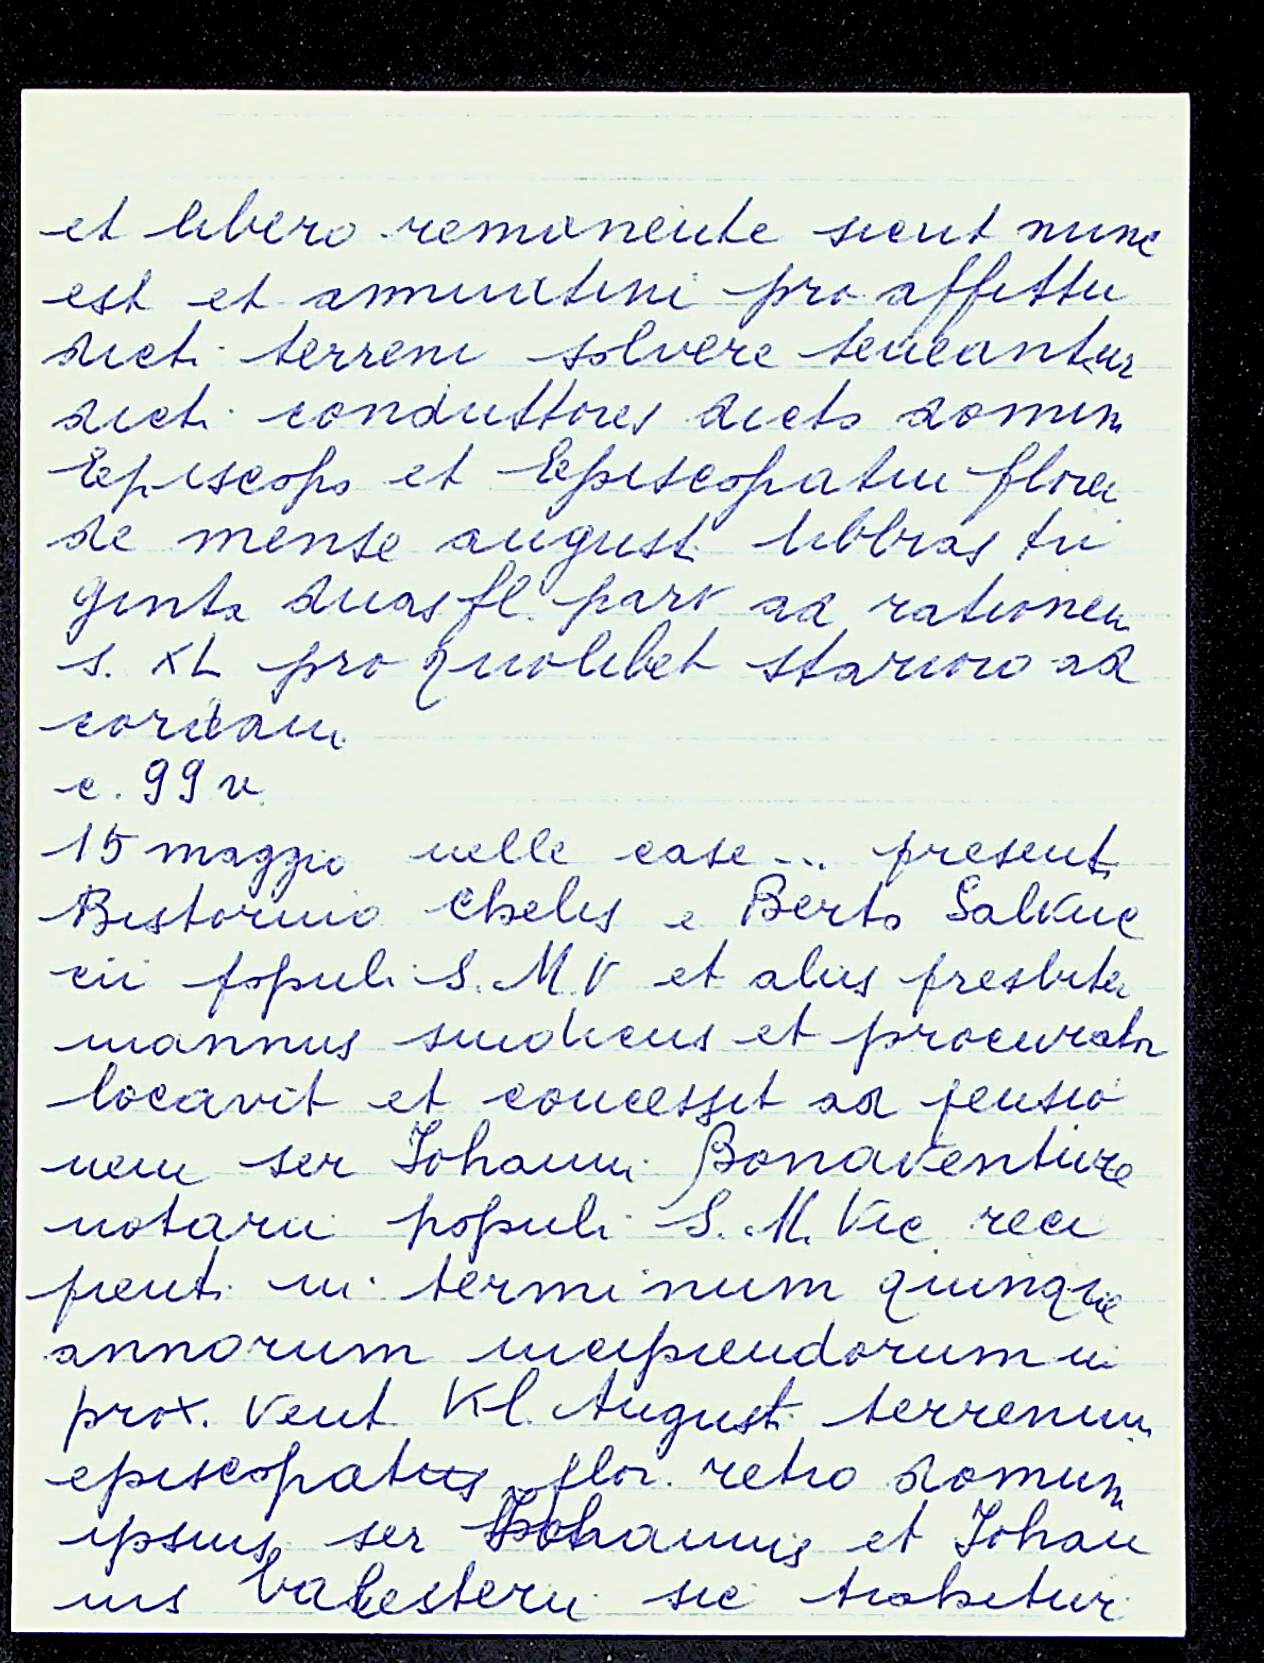 et libero remanente sicut nunc
est et annuatim pro affittu
dicti terreni solvere teneantur
dicti conduttores dicto domin
Episcopo et Episcopatui flor.
de mense augusti libbras tri
ginta duas fl. parv ad rationem
s. XL pro quolibet starioro ad
cordam.
c. 99 v.
15 maggio nelle case ... present.
Bistorino Chelis e Berto Salvuc
cii populi S. M. V et aliis presbiter
mannus sindicus et procurator
locavit et concessit ad pensio
nem ser Johanni Bonaventure
notarii populi S. M. Vic. reci
pienti in terminum quinque
annorum incipiendorum in
prox. vent Kl. Augusti terrenum
episcopatus flor. retro domum
ipsius ser Johannis et Johan
nis balesterii sic trahitur